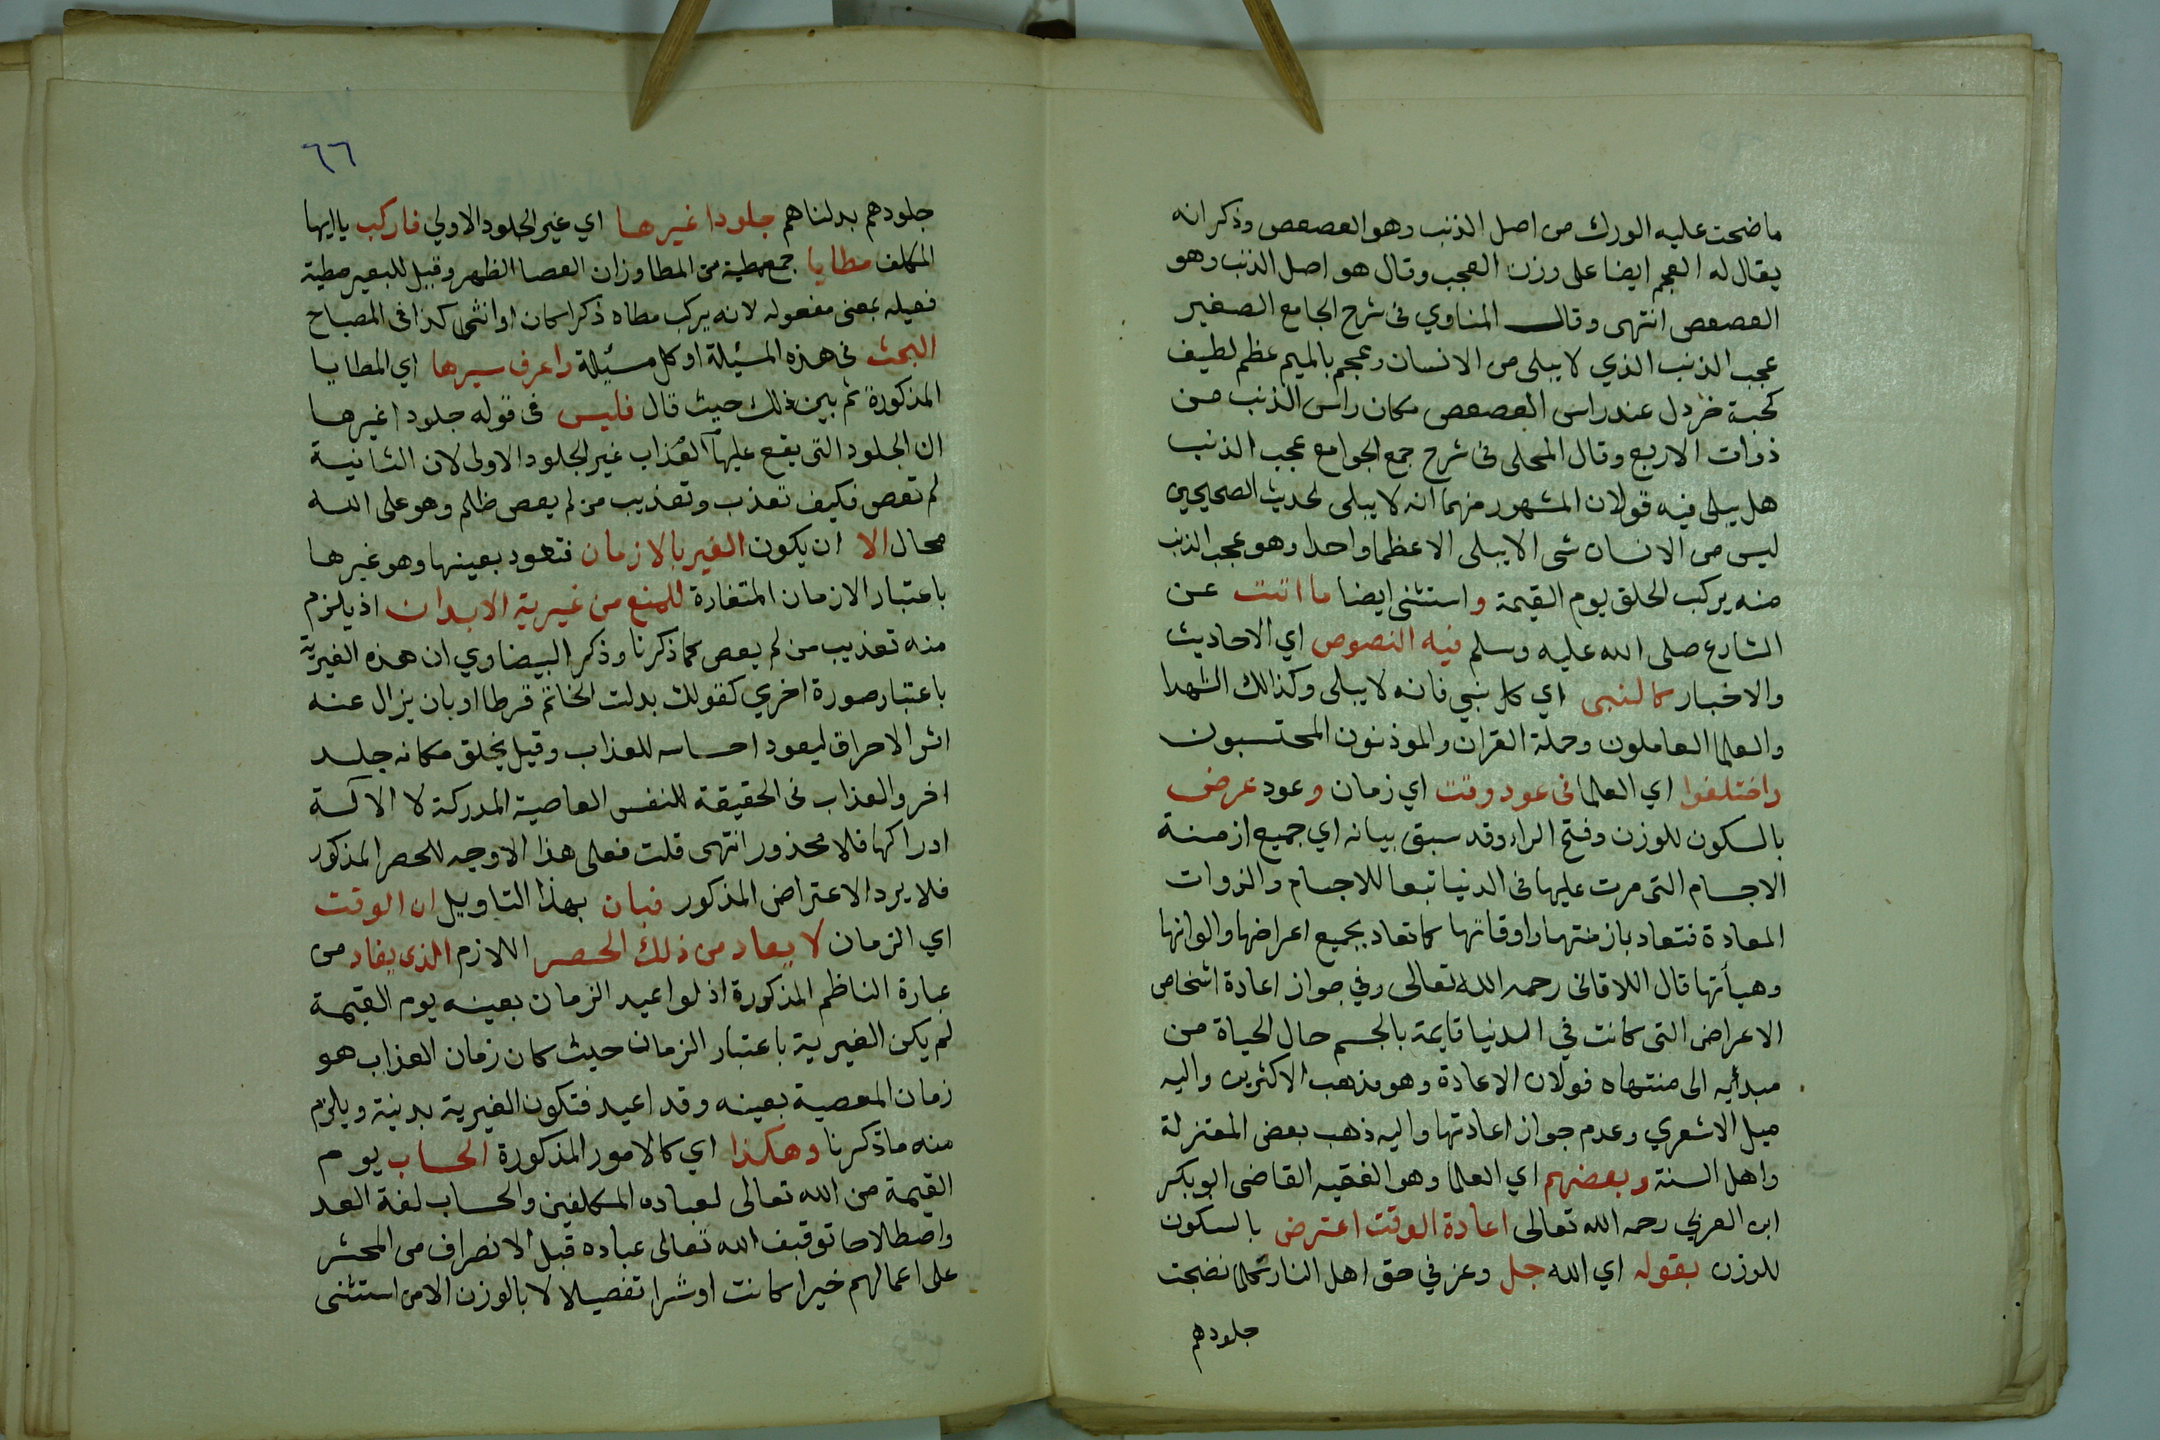 ما ضحت عليه الورك من اصل الذنب وهو العصعص وذكر انه
يقال له العجم ايضا على وزن العجب وقال هو اصل الذنب وهو
العصعص انتهى وقال المناوي في شرح الجامع الصغير
عجب الذنب الذي لا يبلى من الانسان وعجم بالميم عظم لطيف
كحبة خردل عند راس العصعص مكان راس الذنب من
ذوات الاربع وقال المحلى في شرح جمع الجوامع عجب الذنب
هل يبلى فيه قولان المشهور منهما انه لا يبلى لحديث الصحيحين
ليس من الانسان شى الا يبلى الا عظما واحدا وهو عجب الذنب
منه يركب الخلق يوم القيمة واستثنى ايضا ما اتت عن
الشارع صلى الله عليه وسلم فيه النصوص اي الاحاديث
والاخبار كالنبى اي كل نبي فانه لا يبلى وكذالك الشهدا
والعلما العاملون وحملة القران والموذنون المحتسبون
واختلفوا اي العلما فى عود وقت اي زمان وعود عرض
بالسكون للوزن وفتح الراء وقد سبق بيانه اي جميع ازمنة
الاجسام التى مرت عليها فى الدنيا تبعا للاجسام والذوات
المعادة فتعاد بازمنتها واوقاتها كما تعاد بجميع اعراضها والوانها
وهيأتها قال اللاقانى رحمه الله تعالى وفي جواز اعادة اشخاص
الاعراض التى كانت في الدنيا قايمة بالجسم حال الحياة من
مبدأيه الى منتهاه قولان الاعادة وهو مذهب الاكثرين واليه
ميل الاشعري وعدم جواز اعادتها واليه ذهب بعض المعتزلة
واهل السنة وبعضهم اي العلما وهو الفقيه القاضى ابو بكر
ابن العربي رحمه الله تعالى اعادة الوقت اعترض بالسكون
للوزن بقوله اي الله جل وعز في حق اهل النار كلما نضجت
جلودهم
٦٦
جلودهم بدلناهم جلودا غيرها اي غير الجلود الاولي فاركب يا ايها
المكلف مطايا جمع مطية من المطا وزان العصا الظهر وقيل للبعير مطية
فعيله بمعنى مفعوله لانه يركب مطاه ذكرا كان او انثى كذا فى المصباح
البحث فى هذه المسئيلة او كل مسئيلة واعرف سيرها اي المطايا
المذكورة ثم بين ذلك حيث قال فليس فى قوله جلودا غيرها
ان الجلود التى يقع عليها العذاب غير الجلود الاولى لان الثانية
لم تعص فكيف تعذب وتعذيب من لم يعص ظلم وهو على الله
محال الا ان يكون الغير بالازمان فتعود بعينها وهو غيرها
باعتبار الازمان المتغارة للمنع من غيرية الابدان اذ يلزم
منه تعذيب من لم يعص كما ذكرنا وذكر البيضاوي ان هذه الغيرية
باعتبار صورة اخري كقولك بدلت الخاتم قرطا او بان يزال عنه
اثر الاحراق ليعود احساسه للعذاب وقيل يخلق مكانه جلد
اخر والعذاب فى الحقيقة للنفس العاصية المدركة لا الالة
ادراكها فلا محذور انتهى قلت فعلى هذا الاوجه للحصر المذكور
فلا يرد الاعتراض المذكور فبان بهذا التاويل ان الوقت
اي الزمان لا يعاد من ذلك الحصر اللازم الذى يفاد من
عبارة الناظم المذكورة اذ لو اعيد الزمان بعينه يوم القيمة
لم يكن الغيرية باعتبار الزمان حيث كان زمان العذاب هو
زمان المعصية بعينه وقد اعيد فتكون الغيرية بدنية ويلزم
منه ما ذكرنا وهكذا اي كالامور المذكورة الحساب يوم
القيمة من الله تعالى لعباده المكلفين والحساب لغة العد
واصطلاحا توقيف الله تعالى عباده قبل الانصراف من المحشر
على اعمالهم خيرا كانت او شرا تفصيلا لا بالوزن الا من استثنى